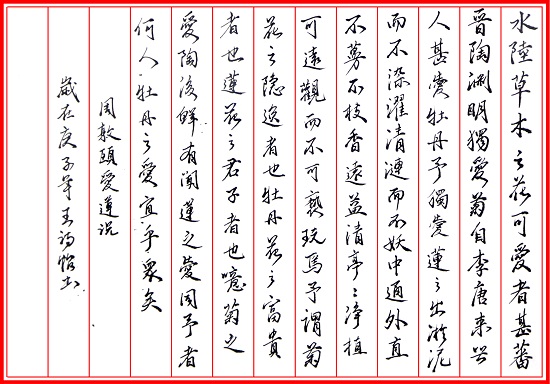 水陸草木之花可愛者甚蕃
晉陶淵明獨愛菊自李唐来世
人甚愛牡丹予獨愛蓮之出淤泥
而不染濯清漣而不妖中通外直
不蔓不枝香遠益清亭々净植
可遠觀而不可褻玩焉予謂菊
花之隐逸者也牡丹花之富貴
者也蓮花之君子者也噫菊之
愛陶後鮮有聞蓮之愛同予者
何人牡丹之愛宜乎衆矣
周敦頤愛蓮説
歲在庚子年王詩怡书